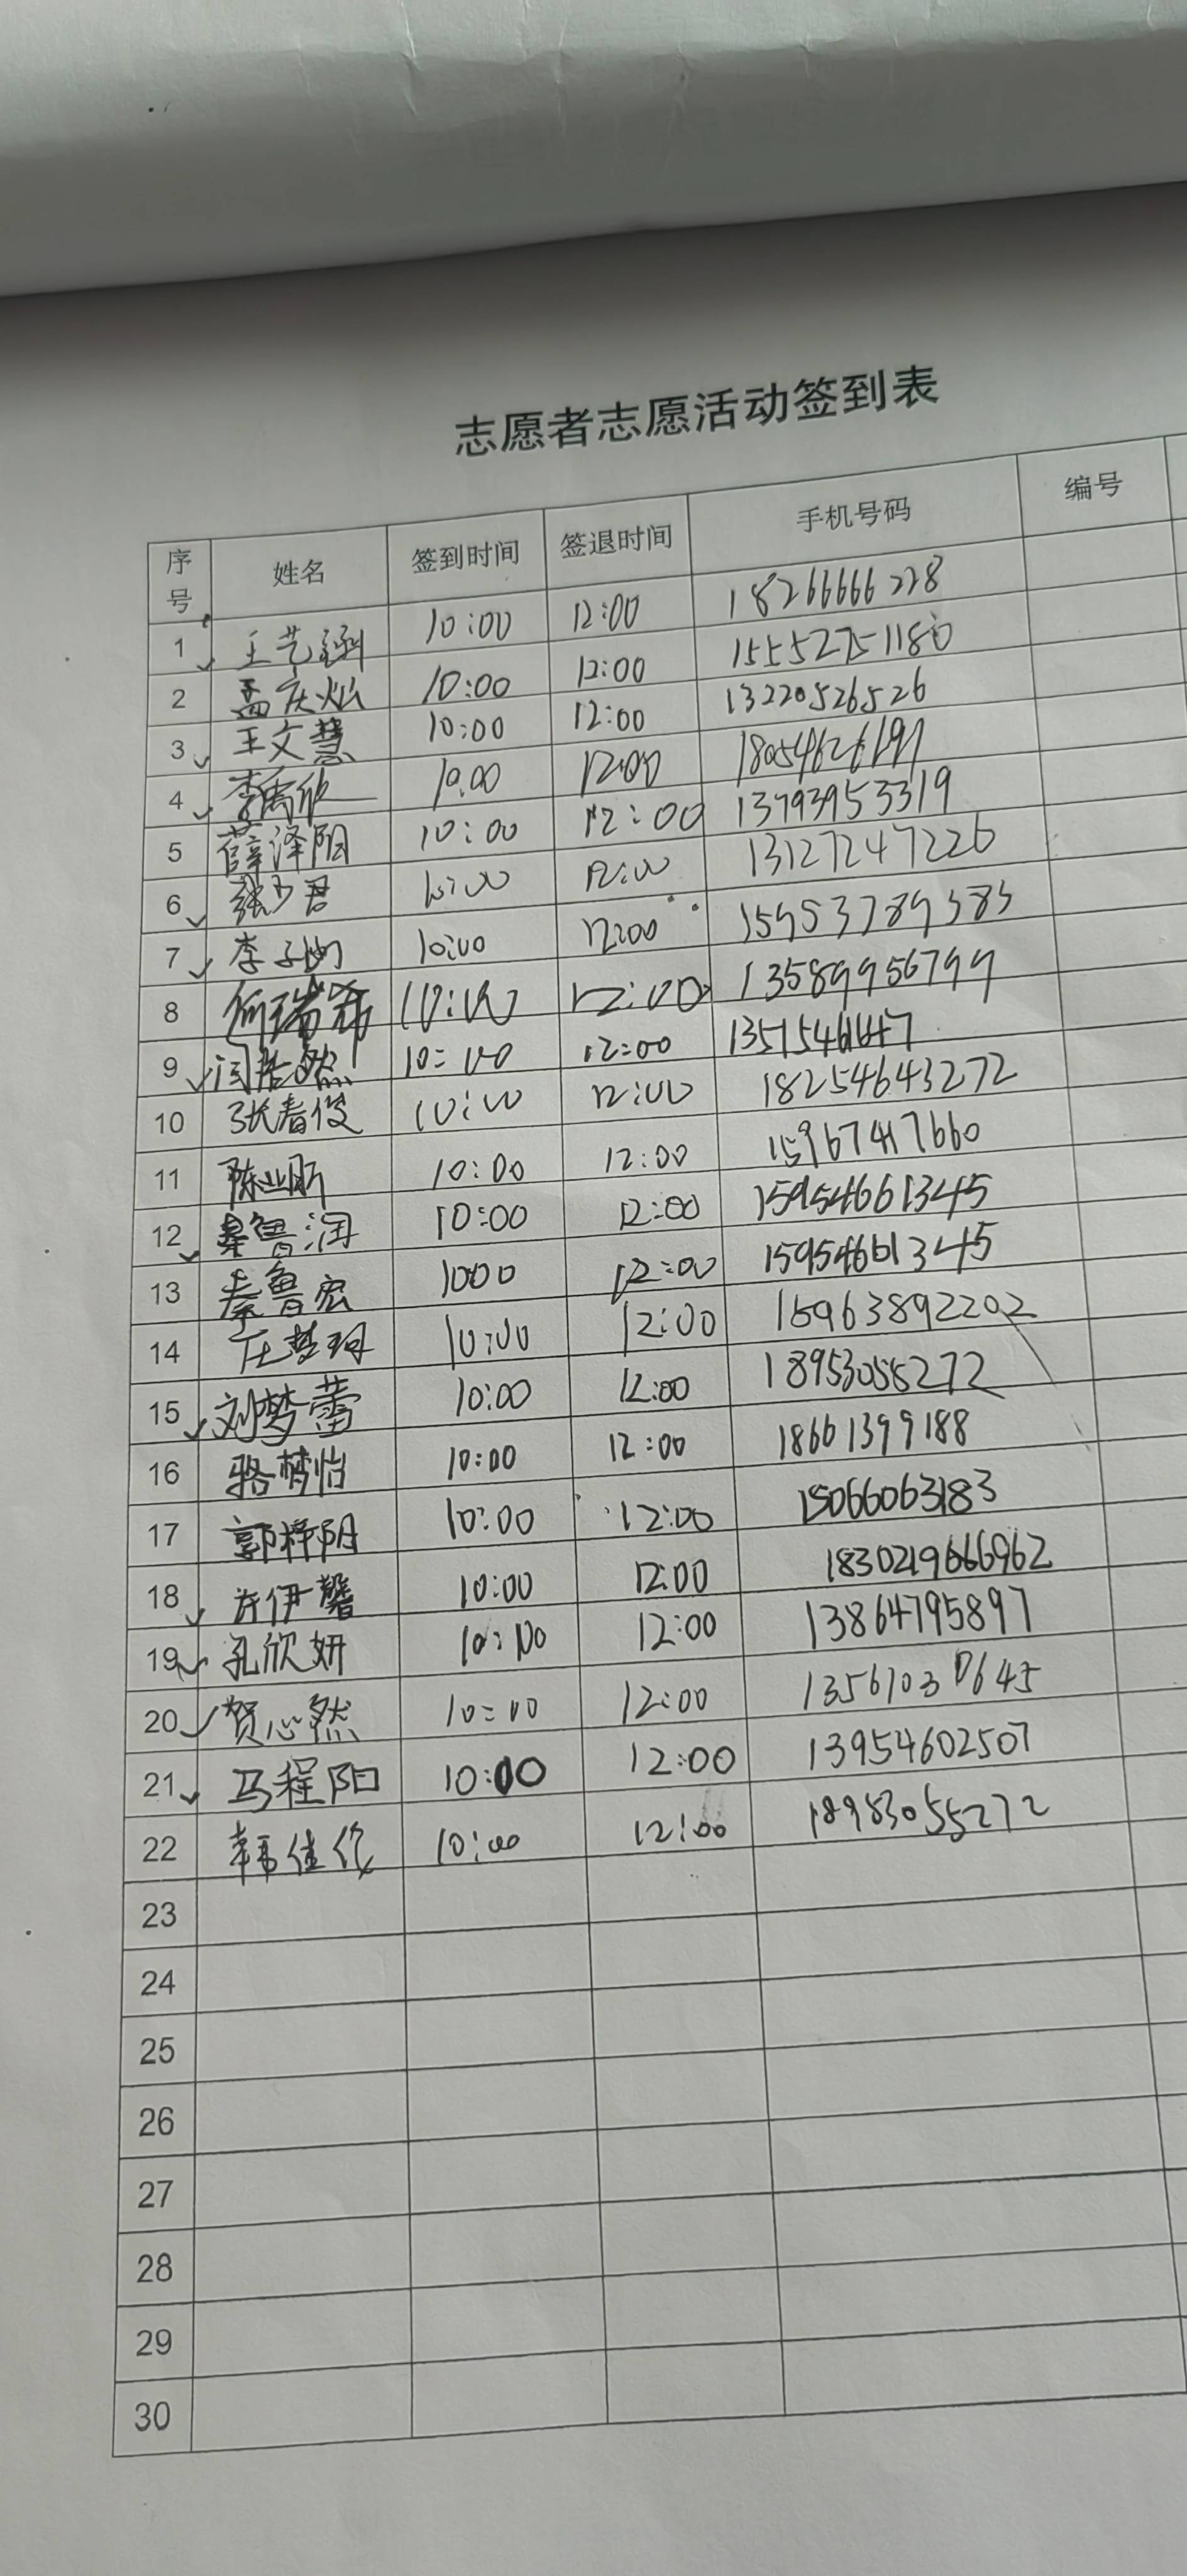 志愿者志愿活动签到表
序号 姓名 签到时间 签退时间 手机号码 编号
1 王艺涵 10:00 12:00 18266666228
2 孟庆灿 10:00 12:00 15552751180
3 王文慧 10:00 12:00 13220526526
4 李禹欣 10:00 12:00 18054626197
5 薛泽阳 10:00 12:00 13793953319
6 张少君 10:00 12:00 13127247226
7 李子 10:00 12:00 15953789585
8 何瑞 10:00 12:00 13589956799
9 闫浩然 10:00 12:00
10 张春俊 10:00 12:00 18254643272
11 陈业昕 10:00 12:00 15967417660
12 秦鲁润 10:00 12:00 15954661345
13 秦鲁宏 1000 12:00 15954661345
14 10:00 12:00 15963892202
15 刘梦蕾 10:00 12:00 18953055272
16 骆梦怡 10:00 12:00 18661399188
17 郭梓阳 10:00 12:00 15066063183
18 许伊馨 10:00 12:00
19 孔欣妍 10:00 12:00 13864795897
20 贺心然 10:00 12:00
21 马程阳 10:00 12:00 13954602507
22 韩佳伦 10:00 12:00 18983055272
23
24
25
26
27
28
29
30